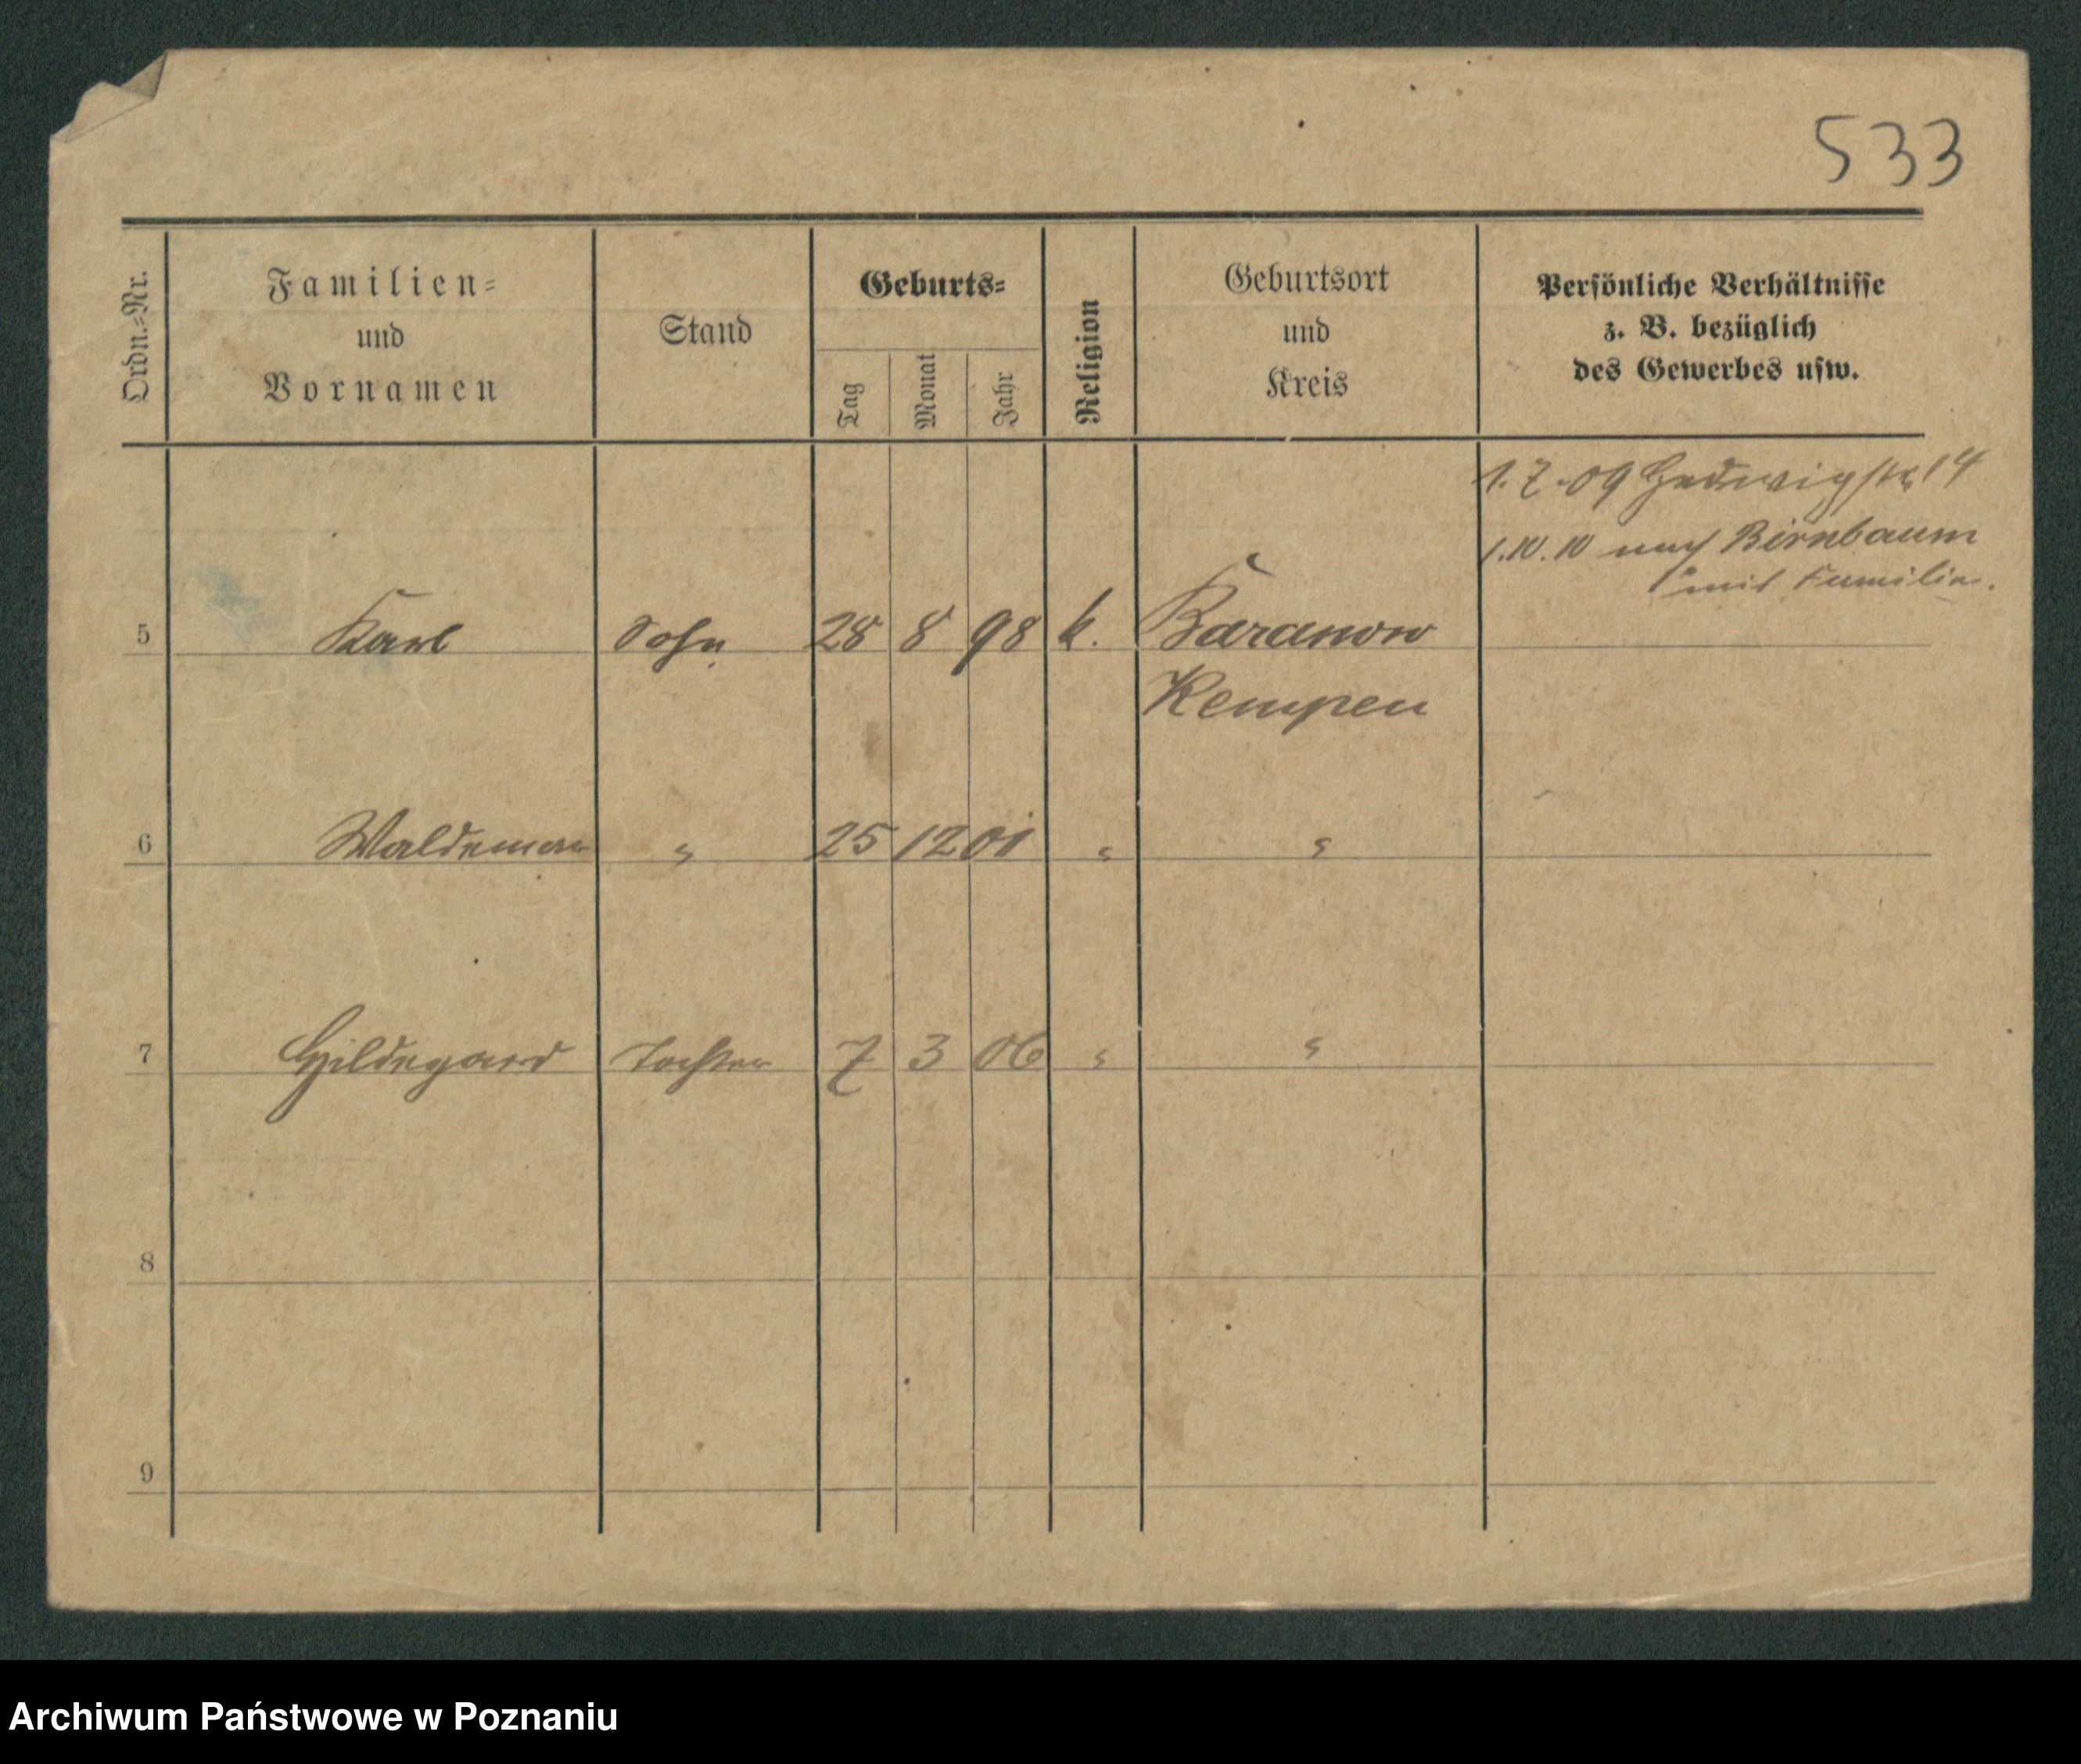 533
Ordn.-Nr.
Familien-
und
Vornamen
Stand
Geburts-
Tag
Monat
Jahr
Religion
Geburtsort
und
Kreis
Persönliche Verhältnisse
z. B. bezüglich
des Gewerbes usw.
1.7.09 Hedwigstr. 14
1.10.10 nach Birnbaum
mit Familie.
5 Karl Sohn 28 8 98 k. Baranow
Kempen
6 Waldemar " 25 12 01 " "
7 Hildegard Tochter 7 3 06 " "
8
9
Archiwum Państwowe w Poznaniu